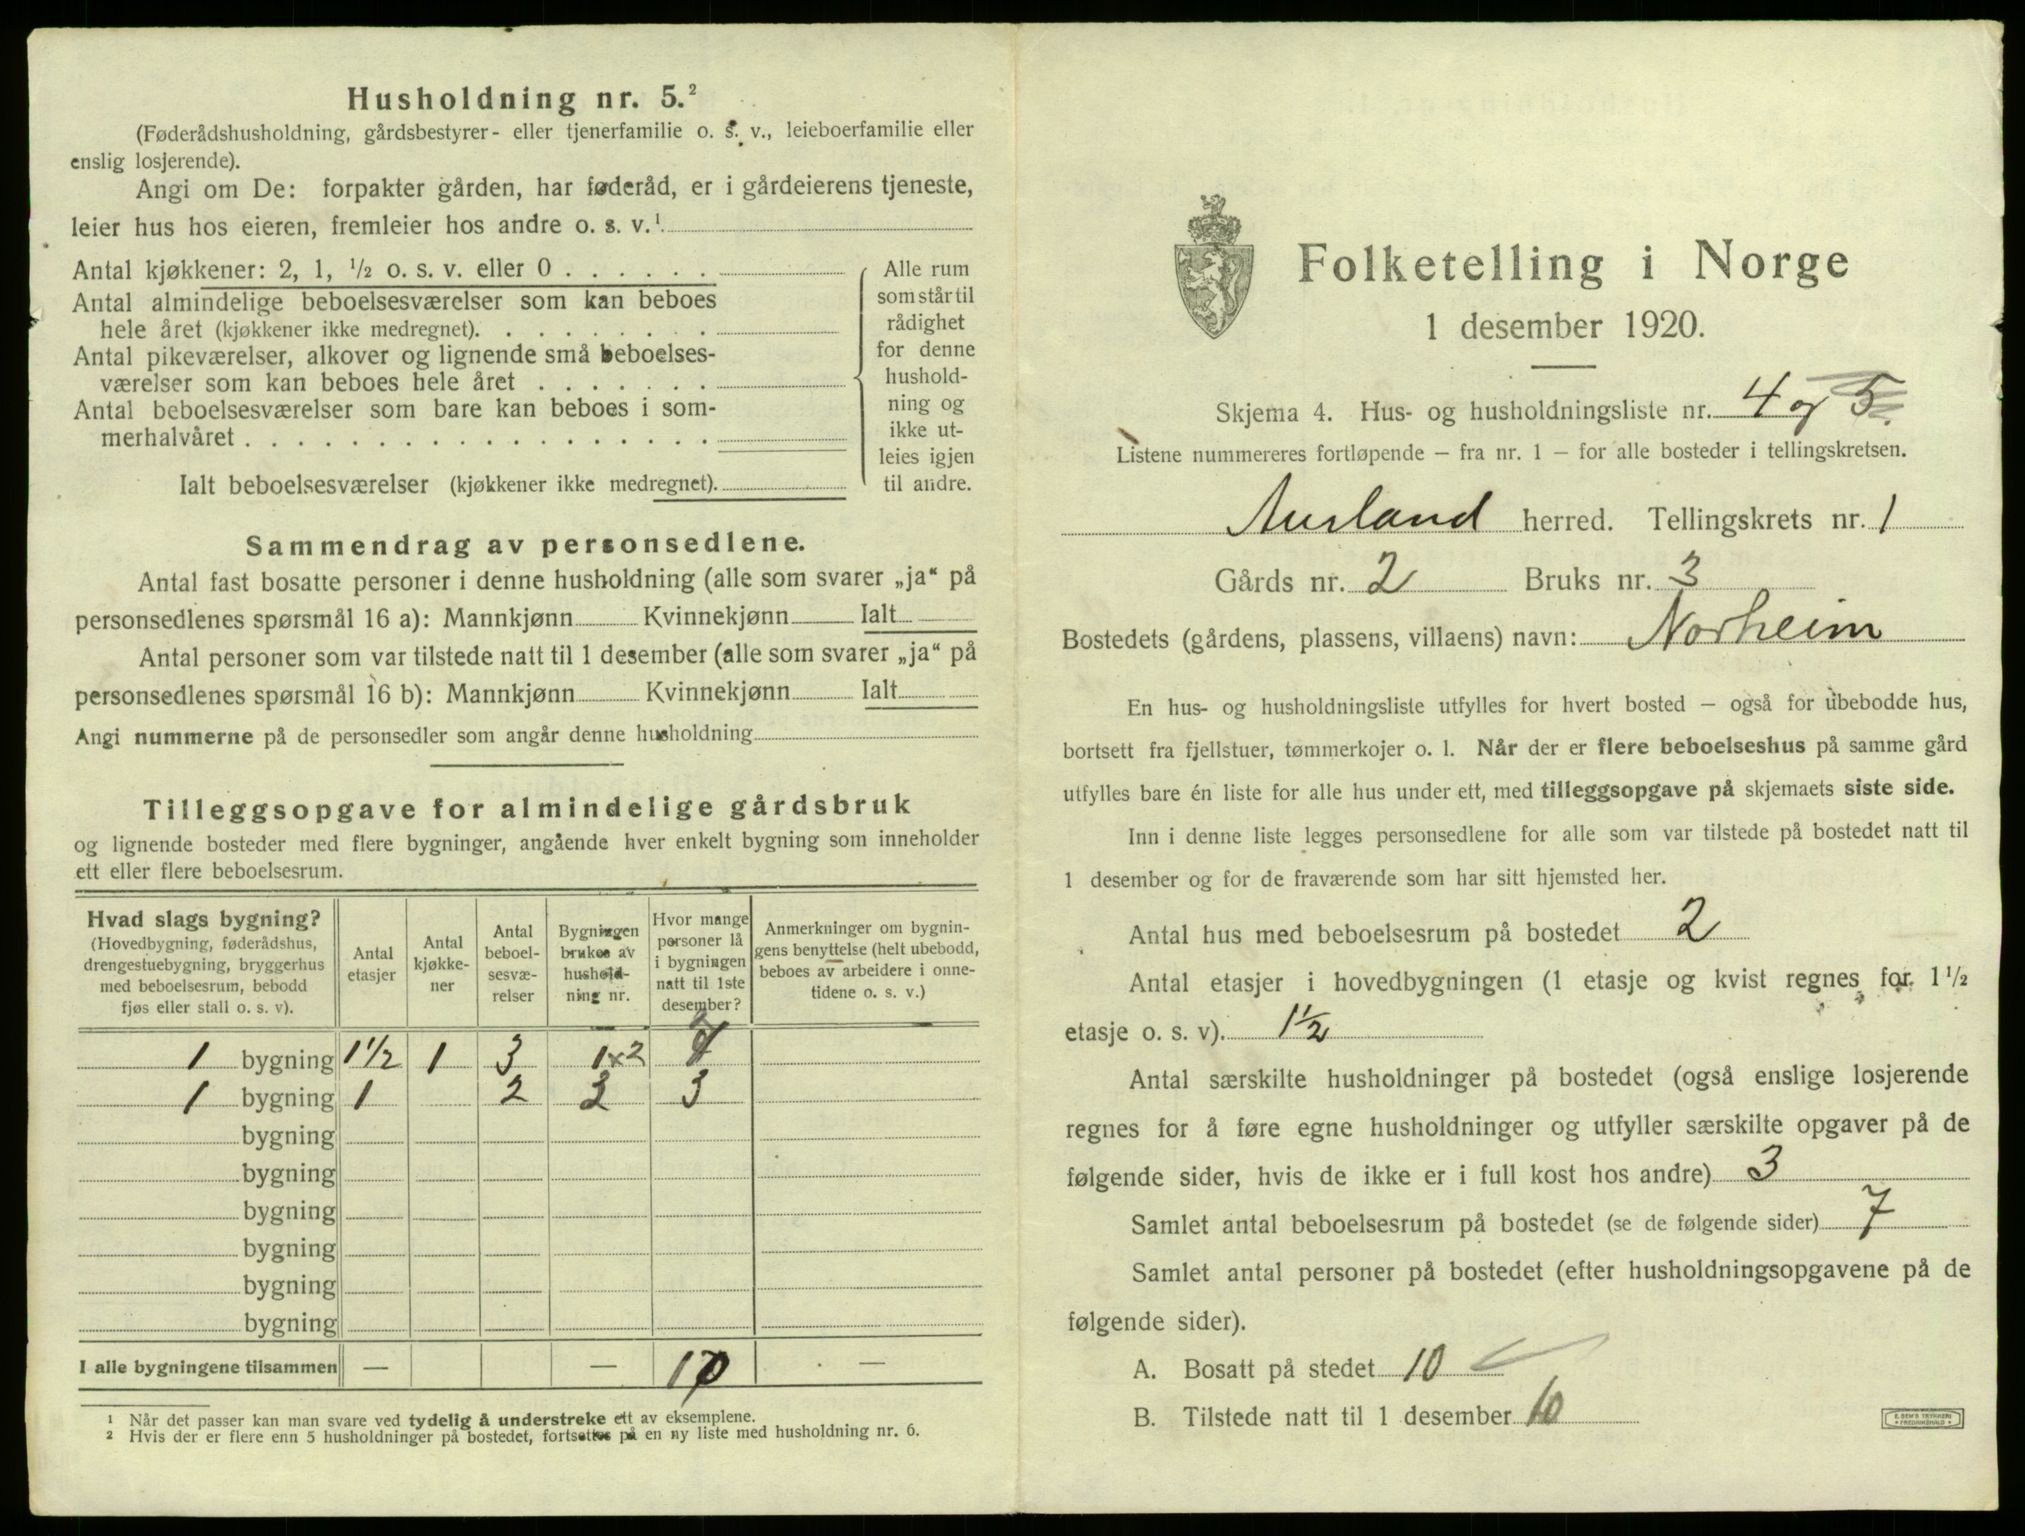 Husholdning nr. 5.²
(Føderådshusholdning, gårdsbestyrer- eller tjenerfamilie o. s. v., leieboerfamilie eller
enslig losjerende).
Angi om De: forpakter gården, har føderåd, er i gårdeierens tjeneste,
leier hus hos eieren, fremleier hos andre o. s. v.¹
Antal kjøkkener: 2, 1, ½ o. s. v. eller 0 . . . . . .
Antal almindelige beboelsesværelser som kan beboes
hele året (kjøkkener ikke medregnet). . . . . . . . .
Antal pikeværelser, alkover og lignende små beboelses-
værelser som kan beboes hele året . . . . . . .
Antal beboelsesværelser som bare kan beboes i som-
merhalvåret . . . . . . . . . . . . . . . . . .
Ialt beboelsesværelser (kjøkkener ikke medregnet).
Alle rum
som står til
rådighet
for denne
hushold-
ning og
ikke ut-
leies igjen
til andre.
Sammendrag av personsedlene.
Antal fast bosatte personer i denne husholdning (alle som svarer „ja“ på
personsedlenes spørsmål 16 a): Mannkjønn Kvinnekjønn Ialt
Antal personer som var tilstede natt til 1 desember (alle som svarer „ja“ på
personsedlenes spørsmål 16 b): Mannkjønn Kvinnekjønn Ialt
Angi nummerne på de personsedler som angår denne husholdning
Tilleggsopgave for almindelige gårdsbruk
og lignende bosteder med flere bygninger, angående hver enkelt bygning som inneholder
ett eller flere beboelsesrum.
Hvad slags bygning?
(Hovedbygning, føderådshus,
drengestuebygning, bryggerhus
med beboelsesrum, bebodd
fjøs eller stall o. s. v).
Antal
etasjer
Antal
kjøkke-
ner
Antal
beboel-
sesvæ-
relser
Bygningen
brukes av
hushold-
ning nr.
Hvor mange
personer lå
i bygningen
natt til 1ste
desember?
Anmerkninger om bygnin-
gens benyttelse (helt ubebodd,
beboes av arbeidere i onne-
tidene o. s. v.)
1 bygning 1½ 1 3 1×2
1 bygning 1 2 3 3
bygning
bygning
bygning
bygning
bygning
bygning
I alle bygningene tilsammen — — 10 —
1 Når det passer kan man svare ved tydelig å understreke ett av eksemplene.
2 Hvis der er flere enn 5 husholdninger på bostedet, fortsettes på en ny liste med husholdning nr. 6.
Folketelling i Norge
1 desember 1920.
Skjema 4. Hus- og husholdningsliste nr. 4 og 5.
Listene nummereres fortløpende – fra nr. 1 – for alle bosteder i tellingskretsen.
Aurland herred. Tellingskrets nr. 1
Gårds nr. 2 Bruks nr. 3
Bostedets (gårdens, plassens, villaens) navn: Norheim
En hus- og husholdningsliste utfylles for hvert bosted – også for ubebodde hus,
bortsett fra fjellstuer, tømmerkojer o. l. Når der er flere beboelseshus på samme gård
utfylles bare én liste for alle hus under ett, med tilleggsopgave på skjemaets siste side.
Inn i denne liste legges personsedlene for alle som var tilstede på bostedet natt til
1 desember og for de fraværende som har sitt hjemsted her.
Antal hus med beboelsesrum på bostedet 2
Antal etasjer i hovedbygningen (1 etasje og kvist regnes for 1½
etasje o. s. v). 1½
Antal særskilte husholdninger på bostedet (også enslige losjerende
regnes for å føre egne husholdninger og utfyller særskilte opgaver på de
følgende sider, hvis de ikke er i full kost hos andre) 3
Samlet antal beboelsesrum på bostedet (se de følgende sider) 7
Samlet antal personer på bostedet (efter husholdningsopgavene på de
følgende sider).
A. Bosatt på stedet 10
B. Tilstede natt til 1 desember 10
E. SEM'S TRYKKERI
FREDRIKSHALD